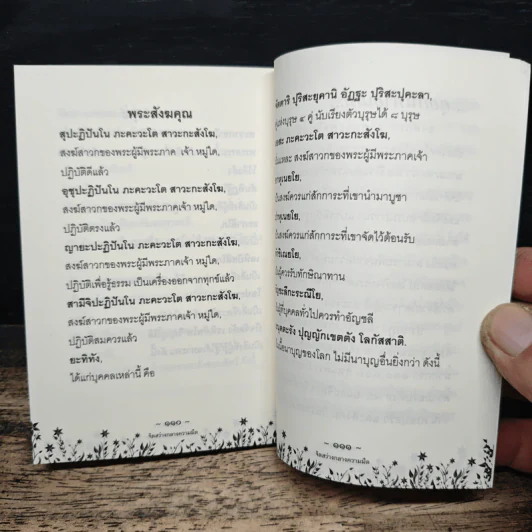 พระสังฆคุณ
สุปะฏิปันโน ภะคะวะโต สาวะกะสังโฆ,
สงฆ์สาวกของพระผู้มีพระภาคเจ้า หมู่ใด,
ปฏิบัติดีแล้ว
อุชุปะฏิปันโน ภะคะวะโต สาวะกะสังโฆ,
สงฆ์สาวกของพระผู้มีพระภาคเจ้า หมู่ใด,
ปฏิบัติตรงแล้ว
ญายะปะฏิปันโน ภะคะวะโต สาวะกะสังโฆ,
สงฆ์สาวกของพระผู้มีพระภาคเจ้า หมู่ใด,
ปฏิบัติเพื่อรู้ธรรม เป็นเครื่องออกจากทุกข์แล้ว
สามีจิปะฏิปันโน ภะคะวะโต สาวะกะสังโฆ,
สงฆ์สาวกของพระผู้มีพระภาคเจ้า หมู่ใด,
ปฏิบัติสมควรแล้ว
ยะทิทัง,
ได้แก่บุคคลเหล่านี้ คือ
~ ๑๑๐ ~
จิตสว่างกลางความมืด
ปุริสะยุคานิ อัฏฐะ ปุริสะปุคะลา,
๔ คู่ นับเรียงตัวบุรุษได้ ๘ บุรุษ
ภะคะวะโต สาวะกะสังโฆ,
สงฆ์สาวกของพระผู้มีพระภาคเจ้า
สงฆ์ควรแก่สักการะที่เขานำมาบูชา
สงฆ์ควรแก่สักการะที่เขาจัดไว้ต้อนรับ
ผู้ควรรับทักษิณาทาน
ที่บุคคลทั่วไปควรทำอัญชลี
ปุญญักเขตตัง โลกัสสาติ.
เนื้อนาบุญของโลก ไม่มีนาบุญอื่นยิ่งกว่า ดังนี้
~ ๑๑๑ ~
จิตสว่างกลางความมืด